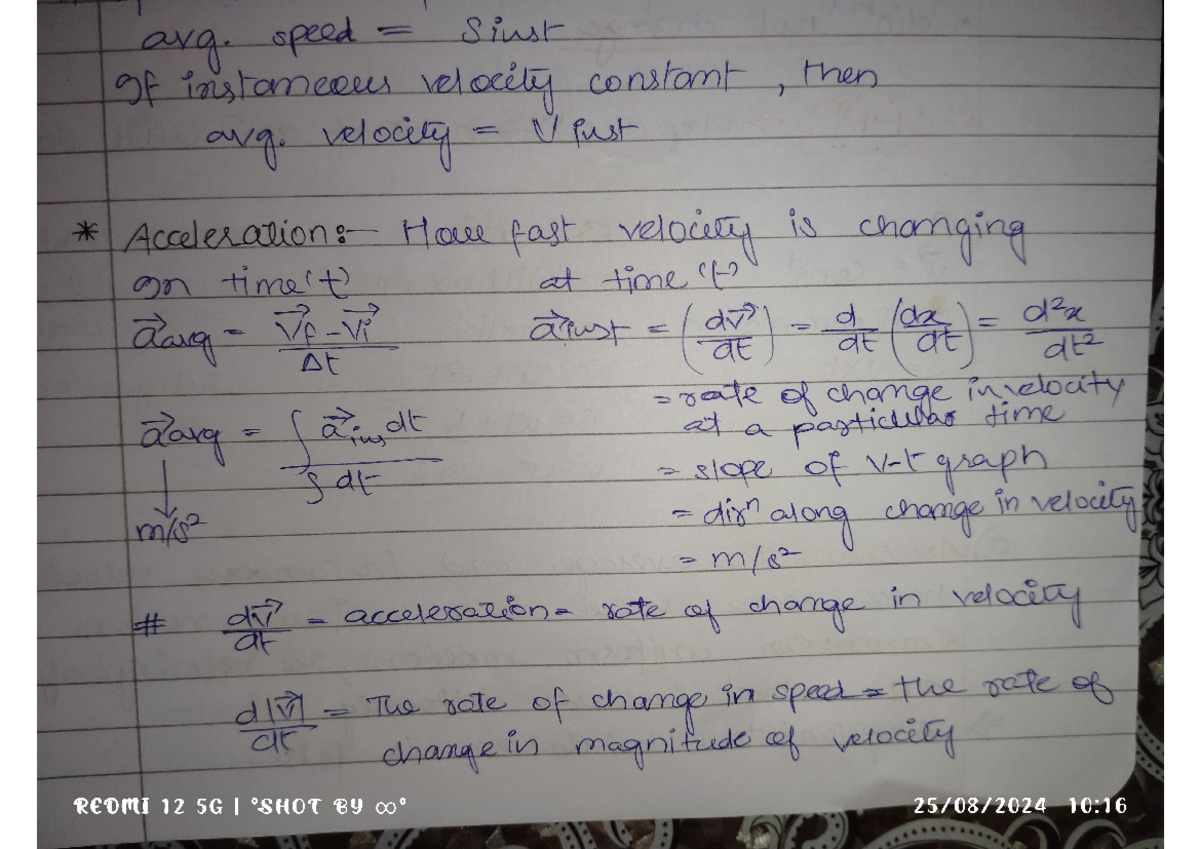 avg. speed = Sinst
If instaneous velocity constant, then
avg. velocity = Vinst
* Acceleration:- How fast velocity is changing
on time(t)
at time (t)
a⃗avg = (V⃗f - V⃗i) / Δt
a⃗inst = (dv⃗/dt) = d/dt (dx/dt) = d²x/dt²
= rate of change in velocity
at a particular time
a⃗avg = ∫a⃗ins dt / ∫dt
= slope of v-t graph
m/s²
= dirⁿ along change in velocity
= m/s²
# dv⃗/dt = acceleration = rate of change in velocity
d|v⃗|/dt = The rate of change in speed = the rate of
change in magnitude of velocity
REDMI 12 5G | °SHOT BY ∞°
25/08/2024 10:16